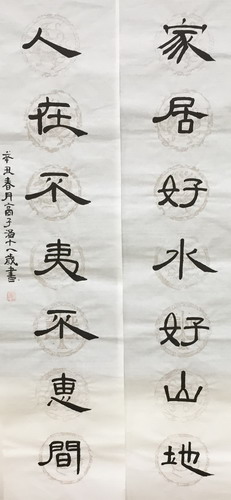 家居好水好山地
人在不夷不惠間
辛丑春月高子涵十八歲書